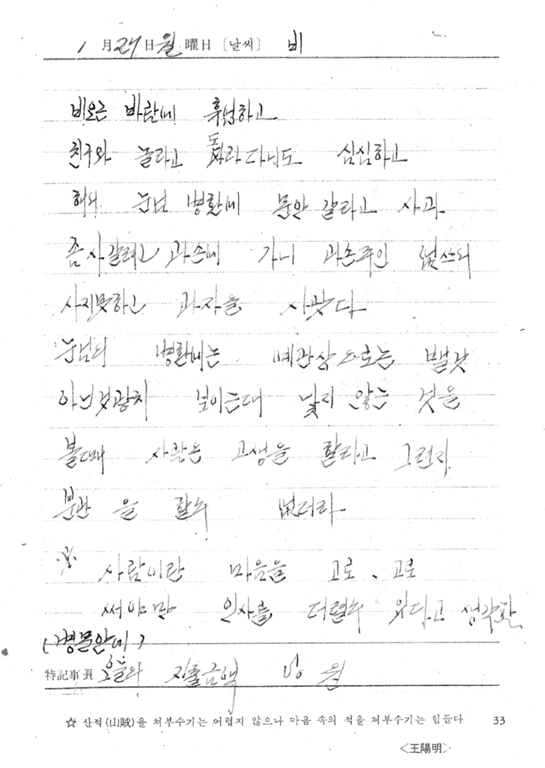 1月 27日 월曜日 [날씨] 비
비오는 바람에 휴업하고
친구와 놀라고 돌라다니도 심심하고
해서 눈님 병환에 문안 갈라고 사과
좀 사갈려고 과손에 가니 과손주인 없쓰니
사지못하고 과자를 사갔다
눈님의 병환에는 예관상으로는 별것
아닌것같치 보이는대 낳지 않는 것을
볼때 사람은 고생을 할라고 그런지
분관을 할수 없더라
※ 사람이란 마음을 고로、고로
써야만 인사를 더럴수 있다고 생각함
(병문안에)
特記事項 오늘의 지출금액 원
☆ 산적(山賊)을 쳐부수기는 어렵지 않으나 마음 속의 적을 쳐부수기는 힘들다 33
<王陽明>